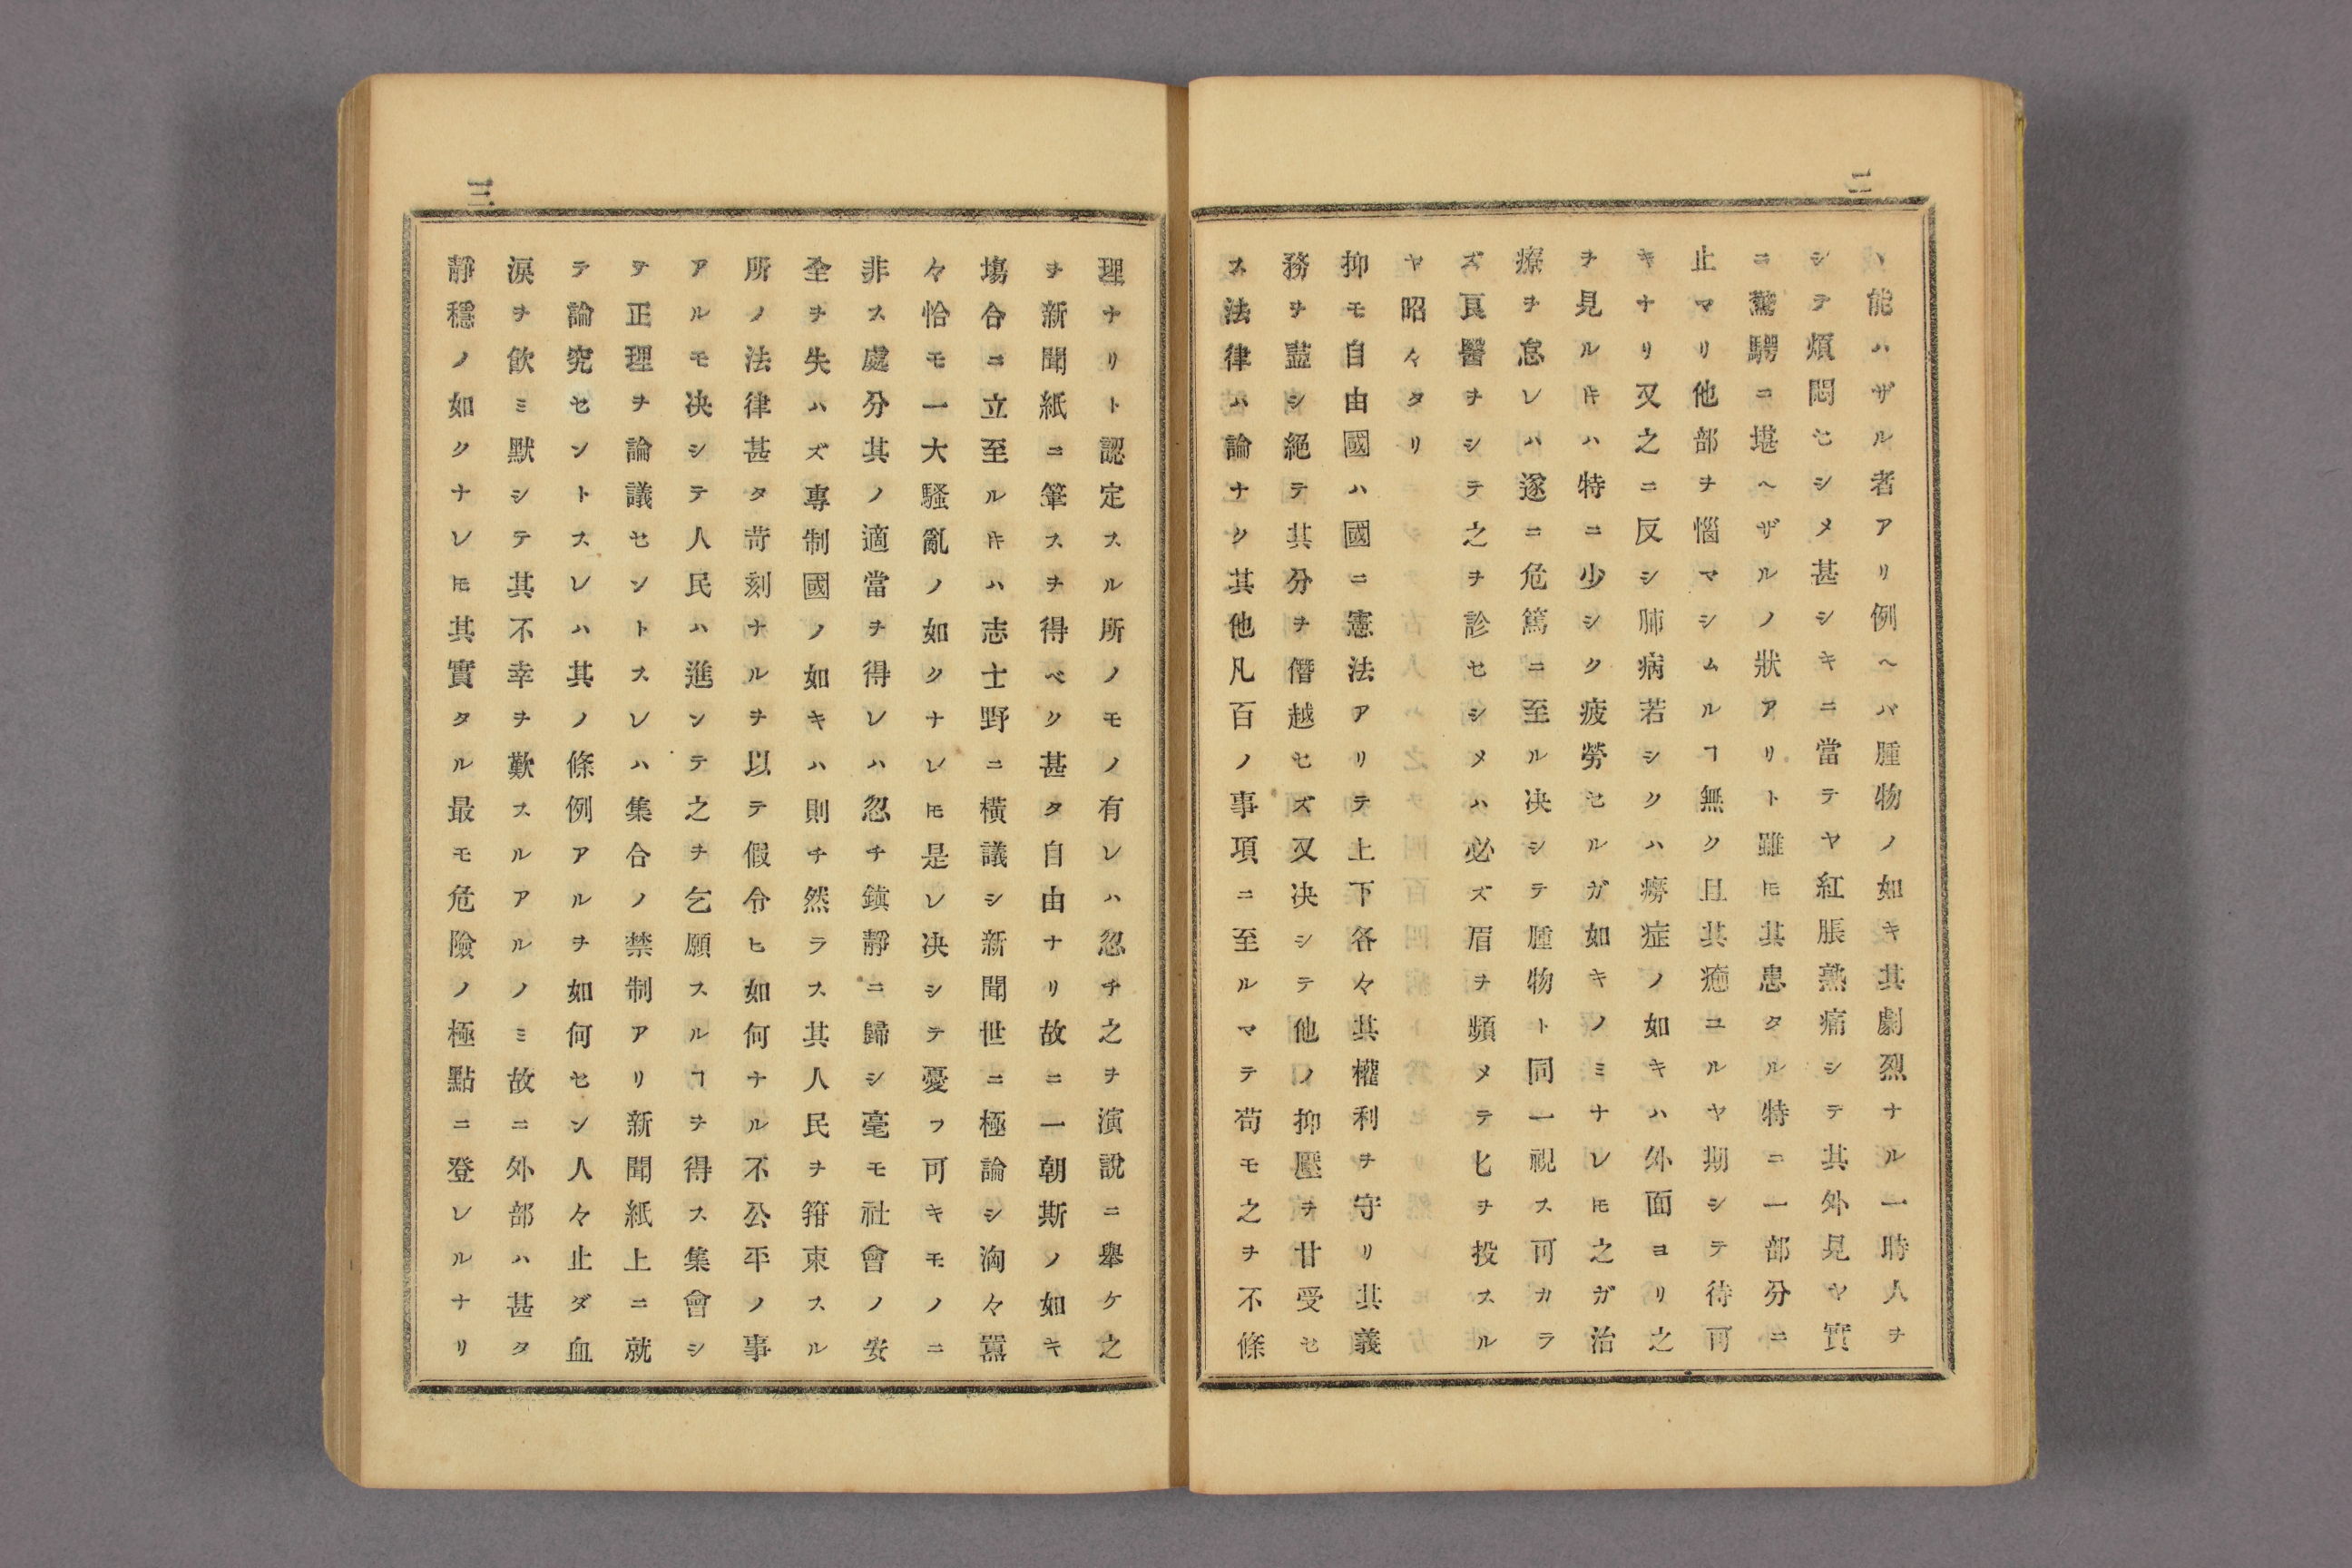 二
ヽ能ハザル者アリ例ヘバ腫物ノ如キ其劇烈ナル一時人ヲ
シテ煩悶セシメ甚シキニ當テヤ紅脹熟痛シテ其外見ヤ實
ニ驚駭ニ堪ヘザルノ狀アリト雖𪜈其患タル特ニ一部分ニ
止マリ他部ヲ惱マシムルヿ無ク且其癒ユルヤ期シテ待可
キナリ又之ニ反シ肺病若シクハ癆症ノ如キハ外面ヨリ之
ヲ見ルキハ特ニ少シク疲勞セルガ如キノミナレ𪜈之ガ治
療ヲ怠レハ遂ニ危篤ニ至ル决シテ腫物ト同一視ス可カラ
ズ良醫ヲシテ之ヲ診セシメハ必ズ眉ヲ顰メテ匕ヲ投スル
ヤ昭々タリ
抑モ自由國ハ國ニ憲法アリテ上下各々其權利ヲ守リ其義
務ヲ盡シ絕テ其分ヲ僭越セズ又决シテ他ノ抑壓ヲ甘受セ
ス法律ハ論ナク其他凡百ノ事項ニ至ルマテ苟モ之ヲ不條
三
理ナリト認定スル所ノモノ有レハ忽チ之ヲ演說ニ舉ケ之
ヲ新聞紙ニ筆スヲ得ベク甚タ自由ナリ故ニ一朝斯ノ如キ
塲合ニ立至ルキハ志士野ニ橫議シ新聞世ニ極論シ洶々囂
々恰モ一大騷亂ノ如クナレ𪜈是レ决シテ憂フ可キモノニ
非ス處分其ノ適當ヲ得レハ忽チ鎭靜ニ歸シ毫モ社會ノ安
全ヲ失ハズ專制國ノ如キハ則チ然ラス其人民ヲ箝束スル
所ノ法律甚タ苛刻ナルヲ以テ假令ヒ如何ナル不公平ノ事
アルモ决シテ人民ハ進ンテ之ヲ乞願スルヿヲ得ス集會シ
テ正理ヲ論議セントスレハ集合ノ禁制アリ新聞紙上ニ就
テ論究セントスレハ其ノ條例アルヲ如何セン人々止ダ血
淚ヲ飮ミ默シテ其不幸ヲ歎スルアルノミ故ニ外部ハ甚タ
靜穩ノ如クナレ𪜈其實タル最モ危險ノ極點ニ登レルナリ